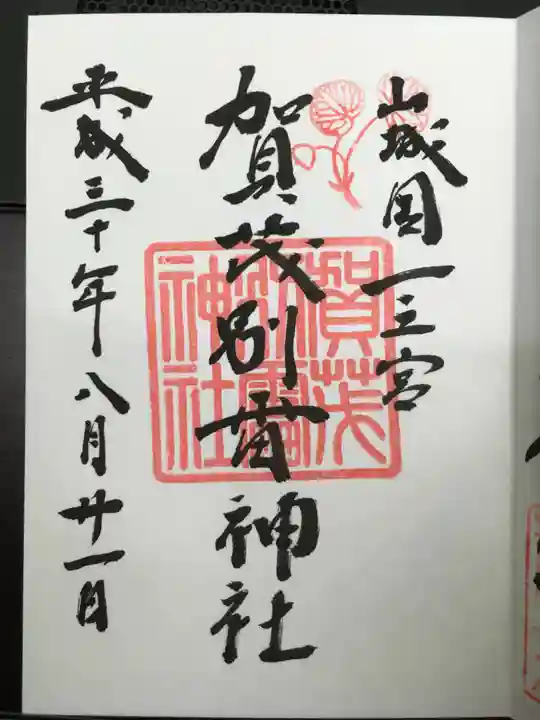 山城国一之宮
賀茂別雷神社
賀茂別雷神社
平成三十年八月廿一日